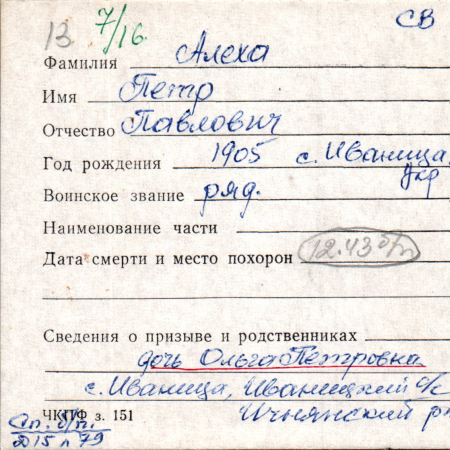 13 7/16 СВ
Фамилия Алеха
Имя Петр
Отчество Павлович
Год рождения 1905 с. Иваница,
Укр
Воинское звание ряд.
Наименование части
Дата смерти и место похорон 12.43 б/п
Сведения о призыве и родственниках
дочь Ольга Петровна
с. Иваница, Иваницкий с/с
ЧКПФ з. 151 Ичнянский р
Сп. б/п.
Д15 л 79